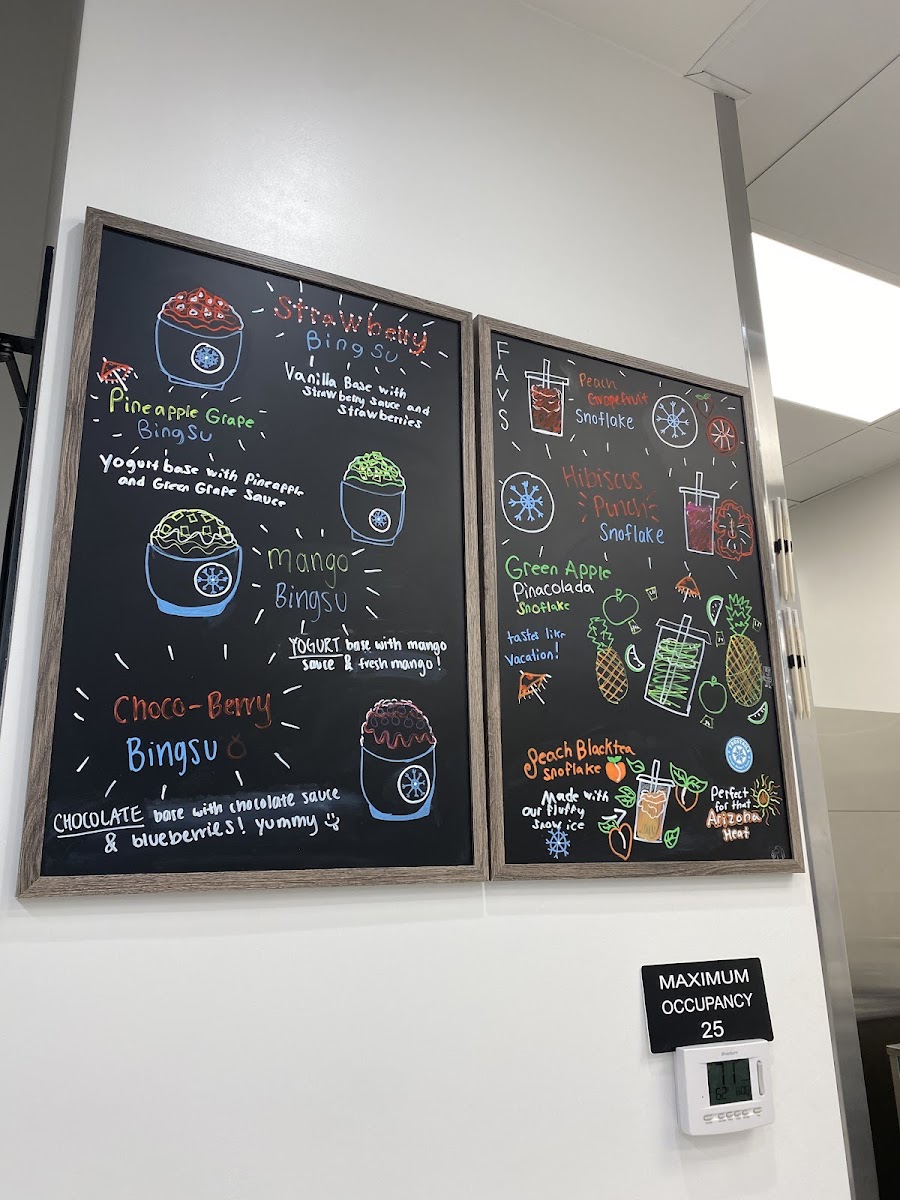 Strawberry
BingSu
Vanilla Base with
Strawberry sauce and
Strawberries
Pineapple Grape
BingSu
Yogurt base with Pineapple
and Green Grape Sauce
Mango
Bingsu
YOGURT base with mango
sauce & fresh mango!
Choco-Berry
Bingsu
CHOCOLATE base with chocolate sauce
& blueberries! yummy
FAVS
Peach
Grapefruit
Snoflake
Hibiscus
Punch
Snoflake
Green Apple
Pinacolada
Snoflake
tastes like
Vacation!
Peach Blacktea
snoflake
Made with
our fluffy
snow ice
Perfect
for that
Arizona
Heat
MAXIMUM
OCCUPANCY
25